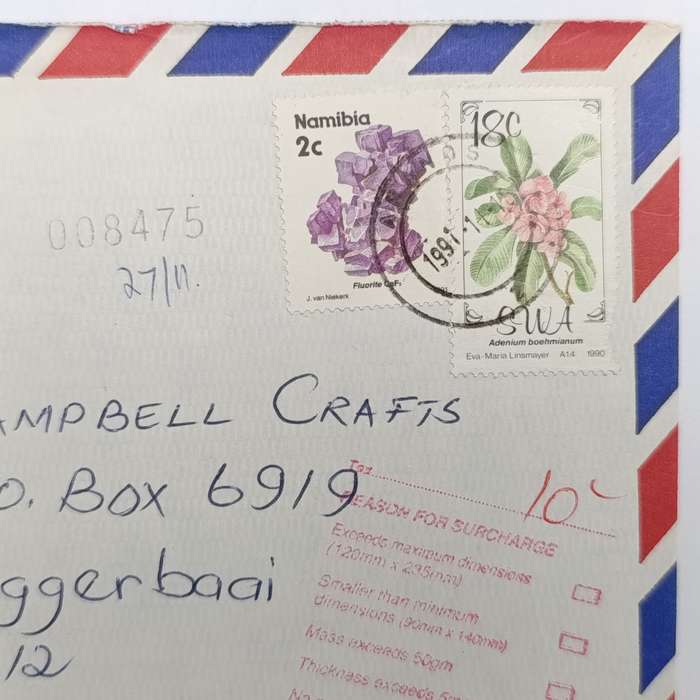 Namibia
2c
Fluorite CaF₂
J. van Niekerk
18c
SWA
Adenium boehmianum
Eva-Maria Linsmayer A14 1990
1991
008475
27/11.
AMPBELL CRAFTS
O. BOX 6919
ggerbaai
12
Tax 10c
REASON FOR SURCHARGE
Exceeds maximum dimensions
(120mm x 235mm)
Smaller than minimum
dimensions (90mm x 140mm)
Mass exceeds 50gm
Thickness exceeds 5m